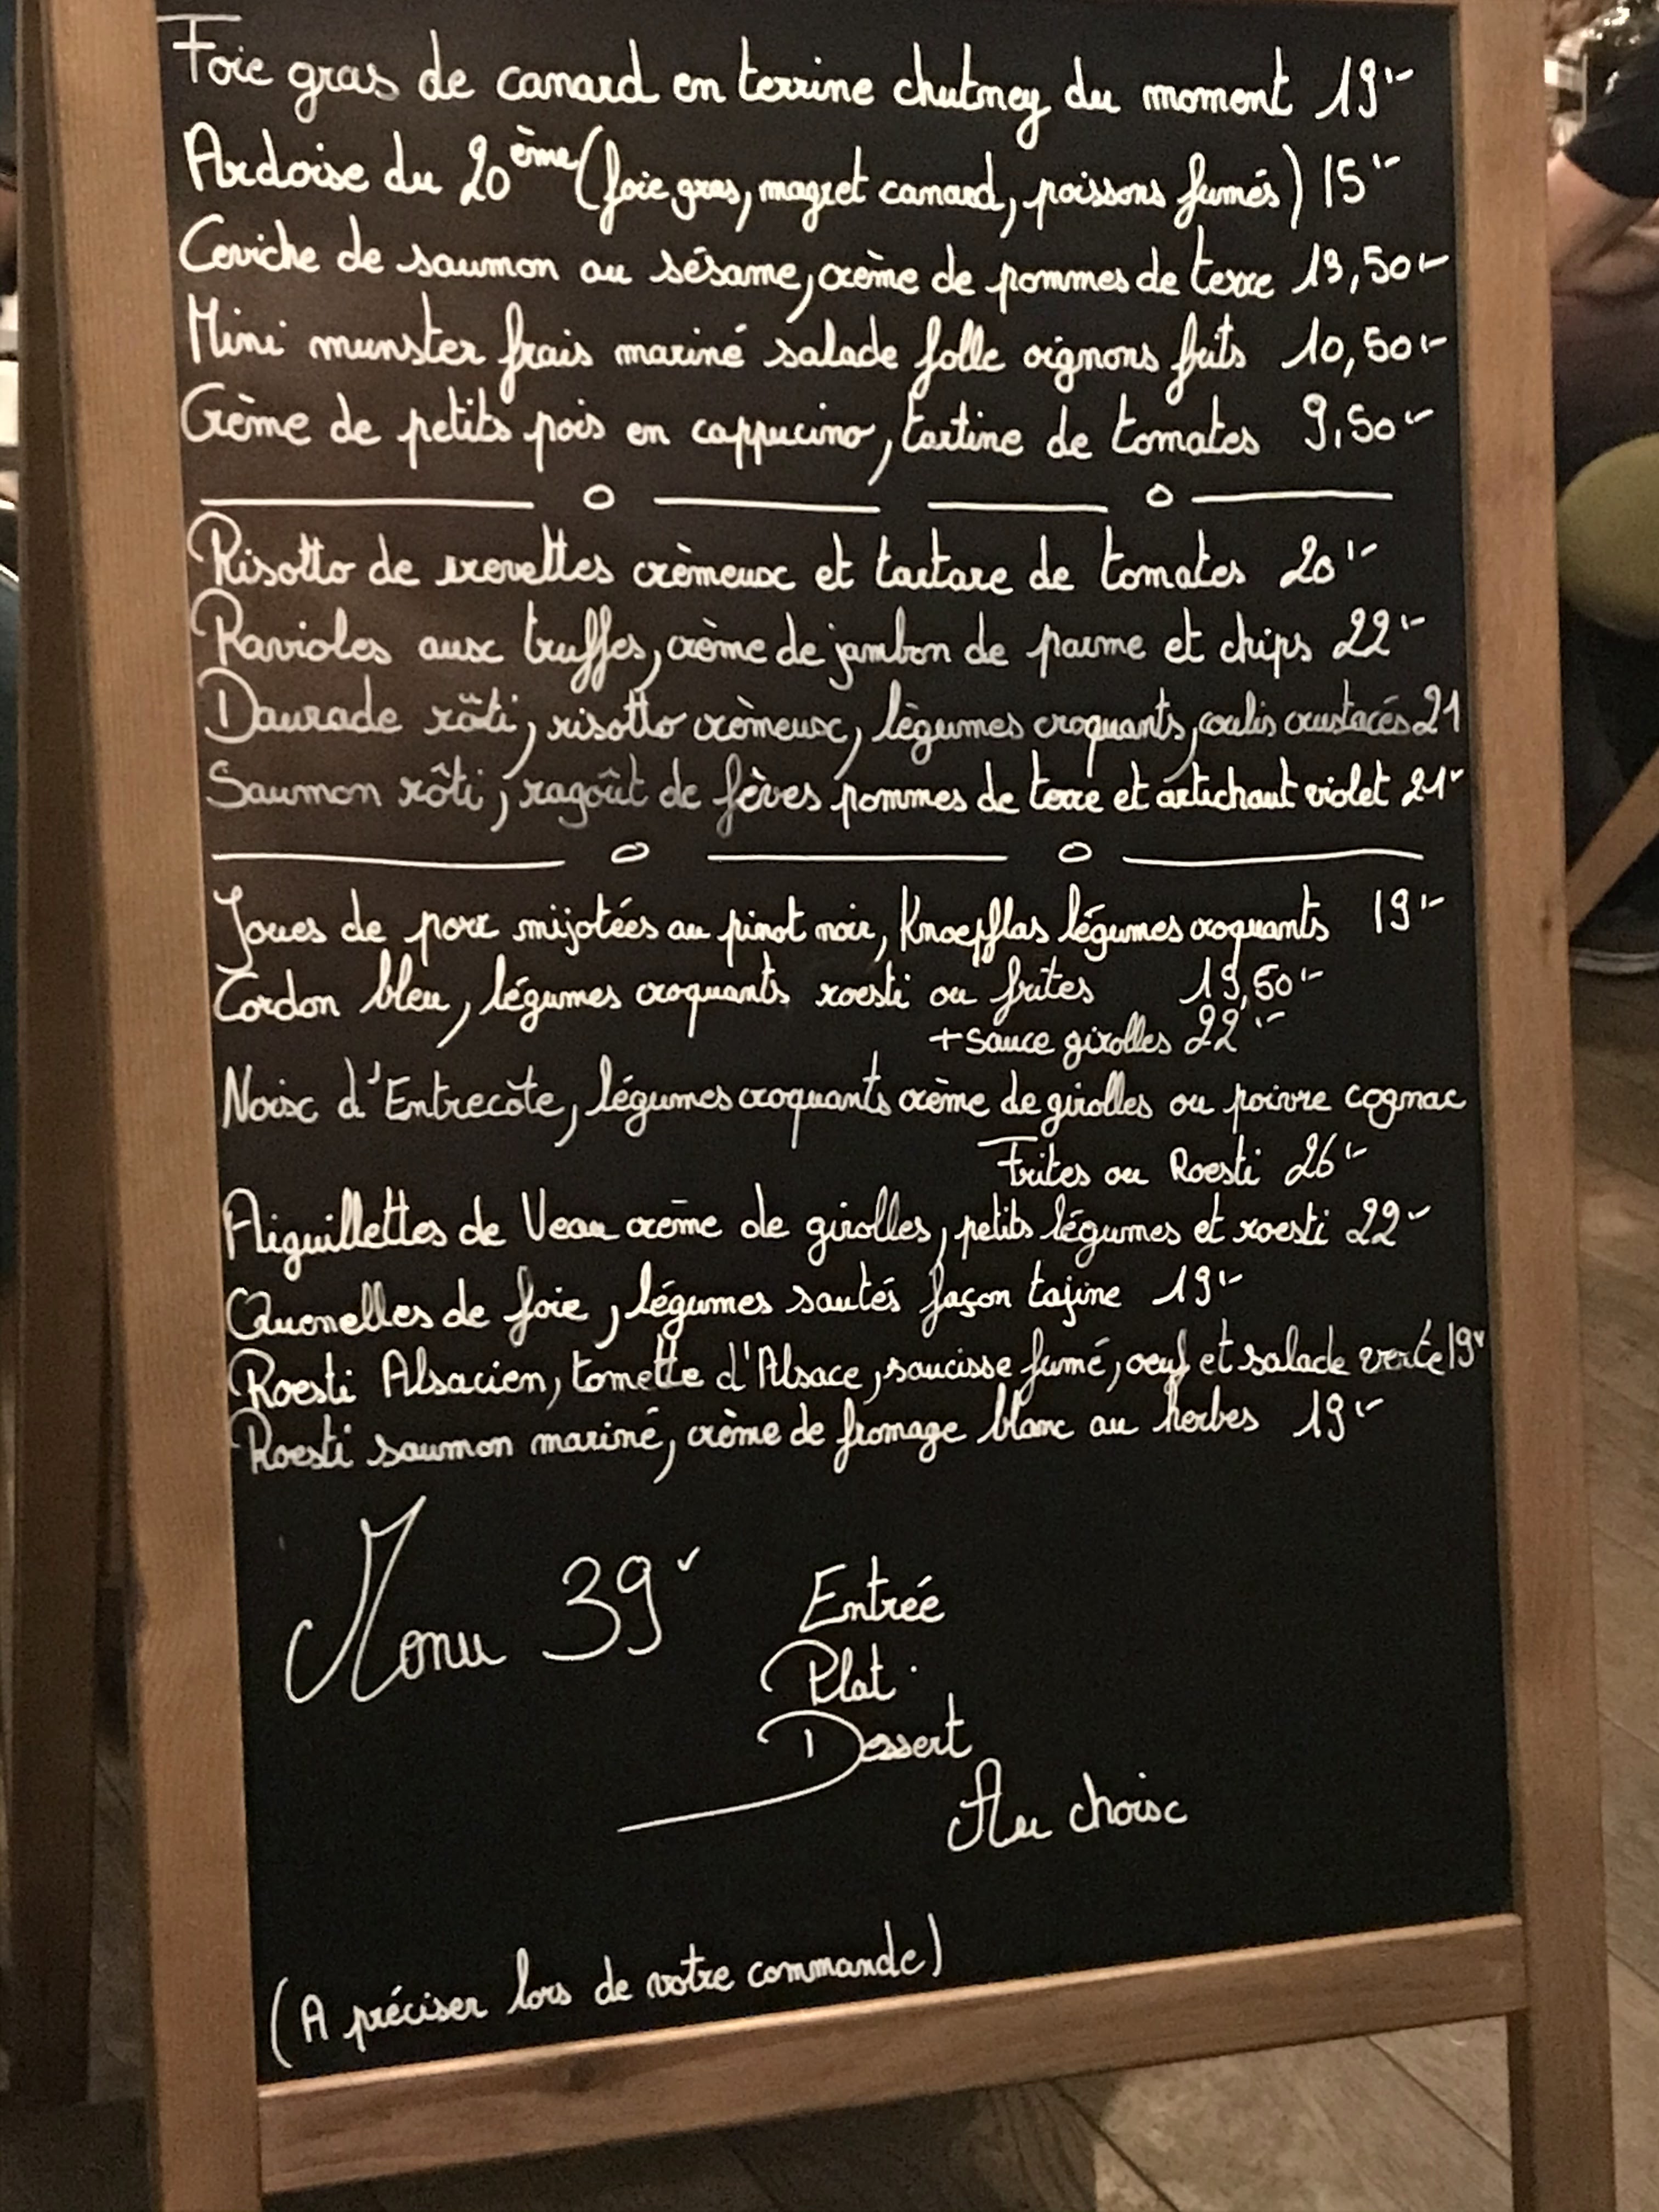 Foie gras de canard en terrine chutney du moment 19.-
Ardoise du 20ème (foie gras, magret canard, poissons fumés) 15.-
Ceviche de saumon au sésame, crème de pommes de terre 13,50.-
Mini munster frais mariné salade folle oignons frits 10,50.-
Crème de petits pois en cappucino, tartine de tomates 9,50.-
Risotto de crevettes crèmeux et tartare de tomates 20.-
Ravioles aux truffes, crème de jambon de parme et chips 22.-
Daurade rôti, risotto crèmeux, légumes croquants, coulis crustacés 21
Saumon rôti, ragoût de fèves pommes de terre et artichaut violet 21.-
Joues de porc mijotées au pinot noir, Knoepflas légumes croquants 19.-
Cordon bleu, légumes croquants roesti ou frites 19,50.-
+ sauce girolles 22.-
Noix d'Entrecôte, légumes croquants crème de girolles ou poivre cognac
Frites ou Roesti 26.-
Aiguillettes de Veau crème de girolles, petits légumes et roesti 22.-
Quenelles de foie, légumes sautés façon tajine 19.-
Roesti Alsacien, tomette d'Alsace, saucisse fumé, oeuf et salade verte 19.-
Roesti saumon mariné, crème de fromage blanc au herbes 19.-
Menu 39.- Entrée
Plat
Dessert
Au choix
(A préciser lors de votre commande)